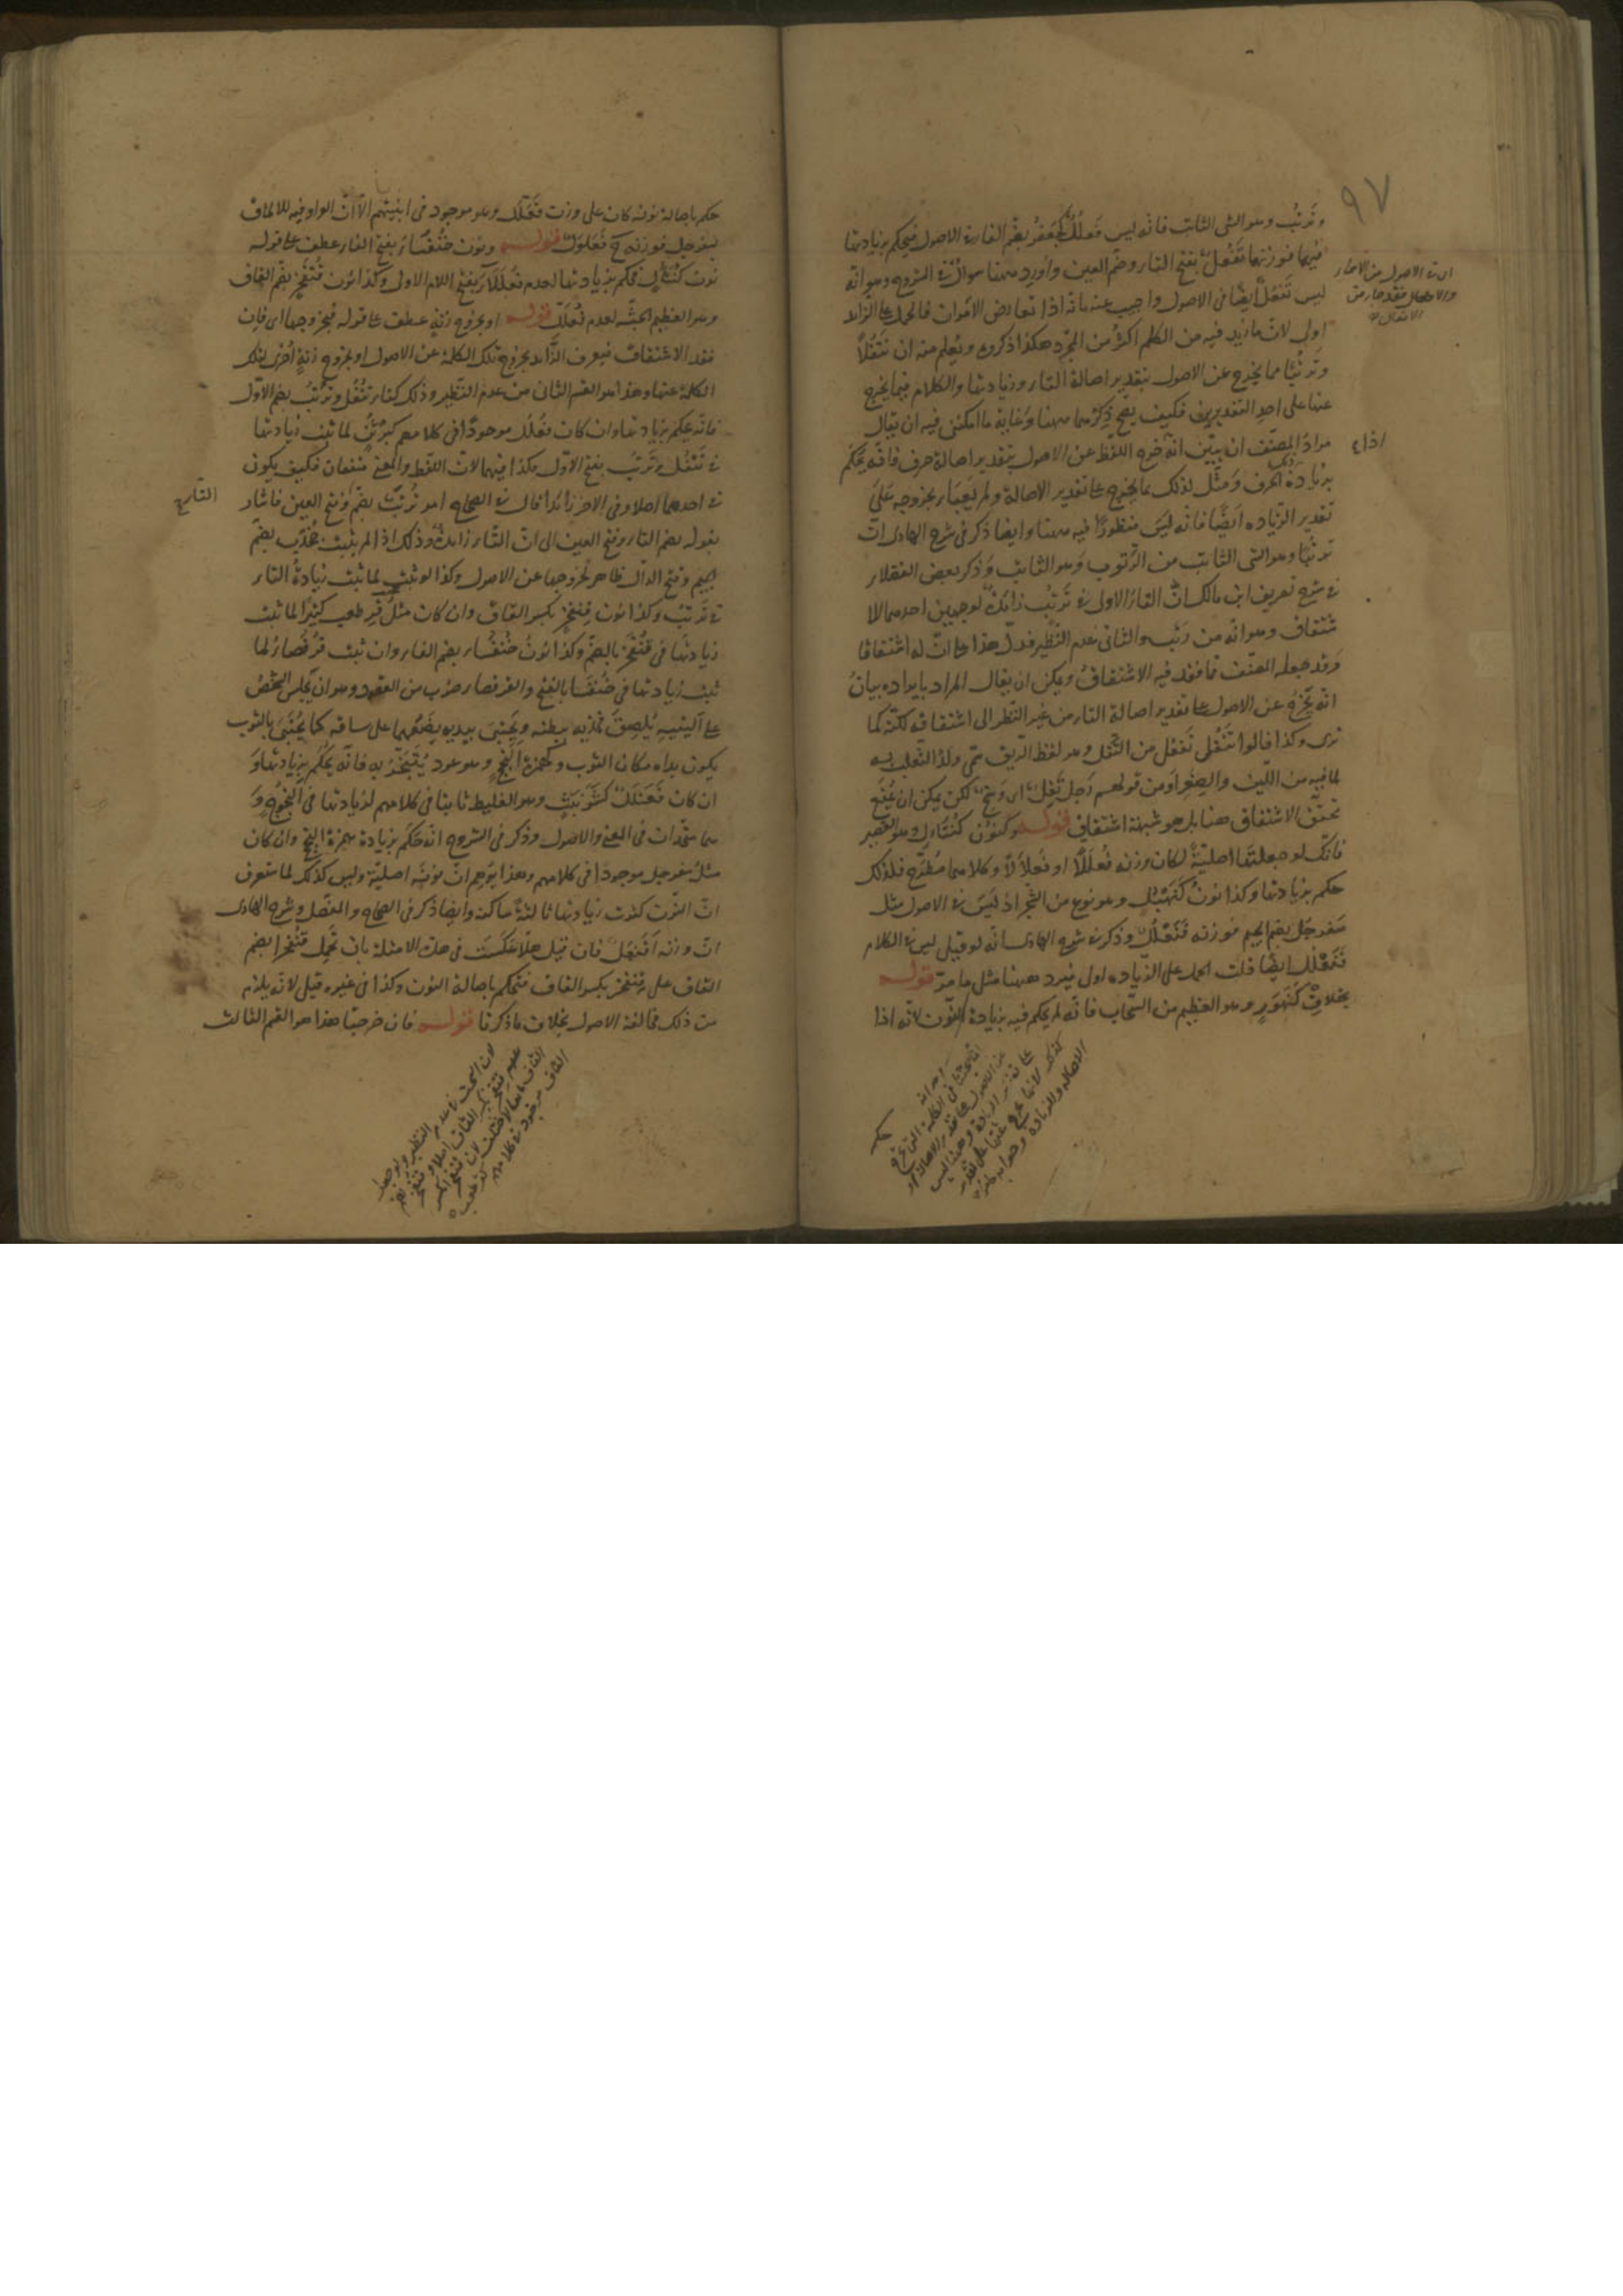 ٩٧
وتَرتُب وهو الشئ الثابت فانه ليس فَعلُلٌ كجَعفُر بضم الفاء في الاصول فيحكم بزيادتها
فيهما فوزنهما تَفْعُل بفتح التاء وضم العين واورد ههنا سؤال في الشروح وهو انه
ليس تَفعُل ايضا في الاصول واجيب عنه بانه اذا تعارض الامران فالحمل على الزائد
اولى لان ما زيد فيه من الكلم اكثر من المجرد هكذا ذكروه ويُعلم منه ان تَتفُلاً
وتَرتُبًا مما يخرج عن الاصول بتقدير اصالة التاء وزيادتها والكلام فيما يخرج
عنها على احد التقديرين فكيف يصح ذكرهما ههنا وغاية ما امكننى فيه ان يقال
مراد المصنف ان يبيّن انه اذا خرج اللفظ عن الاصول بتقدير اصالة حرف فانه يحكم
بزيادة ذلك الحرف ومثّل لذلك بما يخرج على تقدير الاصالة ولم يَعبَأ بخروجه على
تقدير الزياده ايضا فانه ليس منظورًا فيه ههنا وايضا ذكر في شرح الهادى ان
ترتبًا وهو الشئ الثابت من الرُّتوب وهو الثابت وذكر بعض الفضلاء
في شرح تصريف ابن مالك ان التاء الاولى في تَرتُب زائدة لوجهين احدهما الا
شتقاق وهو انه من رتب والثانى عدم النظير فدل هذا على ان له اشتقاقا
وقد جعله المصنف مما فقد فيه الاشتقاق ويمكن ان يقال المراد بايراده بيان
انه يخرج عن الاصول على تقدير اصالة التاء من غير النظر الى اشتقاقه لكنه كما
ترى وكذا قالوا تتفل تفعل من التفل وهو لفظ الريق سمى ولد الثعلب به
لما فيه من اللين والصغر او من قولهم رجل تَفِل اى وسخ لكن يمكن ان يُمنَع
تحقق الاشتقاق هنا بل هو شبهة اشتقاق قوله وكنون كُنتَأل وهو القصير
فانك لو جعلتها اصليّة لكان وزنه فُعلَلًّا او فُعلالًا وكلاهما مُطَّرح فلذلك
حكم بزيادتها وكذا نون كَنَهبُل وهو نوع من الشجر اذ ليس في الاصول مثل
سفرجُل بضم الجيم فوزنه فَنَعلُل وذكر في شرح الهادى انه لو قيل ليس في الكلام
فَنَعلُل ايضا قلت الحمل على الزياده اولى فيرد ههنا مثل ما مرّ قوله
بخلاف كَنَهوَرٍ وهو العظيم من السّحاب فانه لم يحكم فيه بزيادة النون لانه اذا
حكم
حكم باصالة نونه كان على وزن فَعَلَّل وهو موجود في ابنيتهم الا ان الواو فيه للالحاق
بسفرجل فوزنه ح فَعَلوَل قوله ونون خُنفَساء بفتح الفاء عطف على قوله
نون كُنتَأل فحكم بزيادتها لعدم فُعلَلاء بفتح اللام الاولى وكذا نون قُنفَخر بضم القاف
وهو العظيم الجثّة لعدم فُعلَلّ قوله او بخروج زنةٍ عطف على قوله فبخروجها اى فان
فقد الاشتقاق فيعرف الزائد بخروج تلك الكلمة عن الاصول او بخروج زنةٍ اُخرى لتلك
الكلمة عنها وهذا هو القسم الثانى من عدم النظير وذلك كتاء تُتفُل وتُرتُب بضم الاول
فانه يحكم بزيادتها وان كان فُعلُل موجودًا في كلامهم كبُرثُن لما ثبت زيادتها
في تَتفُل وتَرتُب بفتح الاول هكذا فيهما لان اللفظ والمعنى متفقان فكيف يكون
في احدهما اصلا وفى الاخر زائدا قال في الصحاح امر تُرتَب بضم التاء وفتح العين فاشار
بقوله بضم التاء وفتح العين الى ان التاء زايدة وذلك اذا لم يثبت جُخدَب بضم
الجيم وفتح الدال ظاهر لخروجها عن الاصول وكذا لو ثبت لما ثبت زيادة التاء
في تَرتُب وكذا نون قِنفَخر بكسر القاف وان كان مثل قِرطَعب كثيرًا لما ثبت
زيادتها في قُنفَخر بالضمّ وكذا نون خُنفُساء بضم الفاء وان ثبت قُرفُصاء لما
ثبت زيادتها في خُنفَسا بالفتح والقرفصاء ضرب من القعود وهو ان يجلس الشخص
على اليتيه يُلصِق فخذيه ببطنه ويَحتَبى بيديه يضعهما على ساقه كما يُحتَبى بالثوب
يكون يداه مكان الثوب وكهمزة اَلَنجَج وهو عود يُتَبَخَّر به فانه يحكم بزيادتها و
ان كان فَعَنلَل كشَرَنبَث وهو الغليظ ثابتا في كلامهم لزيادتها في اَلَنجوج و
هما متحدان في المعنى والاصول وذكر في الشروح انه حكم بزيادة همزة النجج وان كان
مثل سفرجل موجودًا في كلامهم وهذا يوهم ان نونه اصليّة وليس كذلك لما ستعرف
ان النون كثرت زيادتها ثالثةً ساكنة وايضا ذكر في الصحاح والمفصل وشرح الهادى
ان وزنه اَفَنعَل فان قيل هلّا عكست في هذه الامثلة بان تحمل قُنفَخرا بضم
القاف على قِنفَخر بكسر القاف فتحكم باصالة النون وكذا في غيره قيل لانه يلزم
من ذلك مخالفة الاصول بخلاف ما ذكرنا قوله فان خرجتا هذا هو القسم الثالث